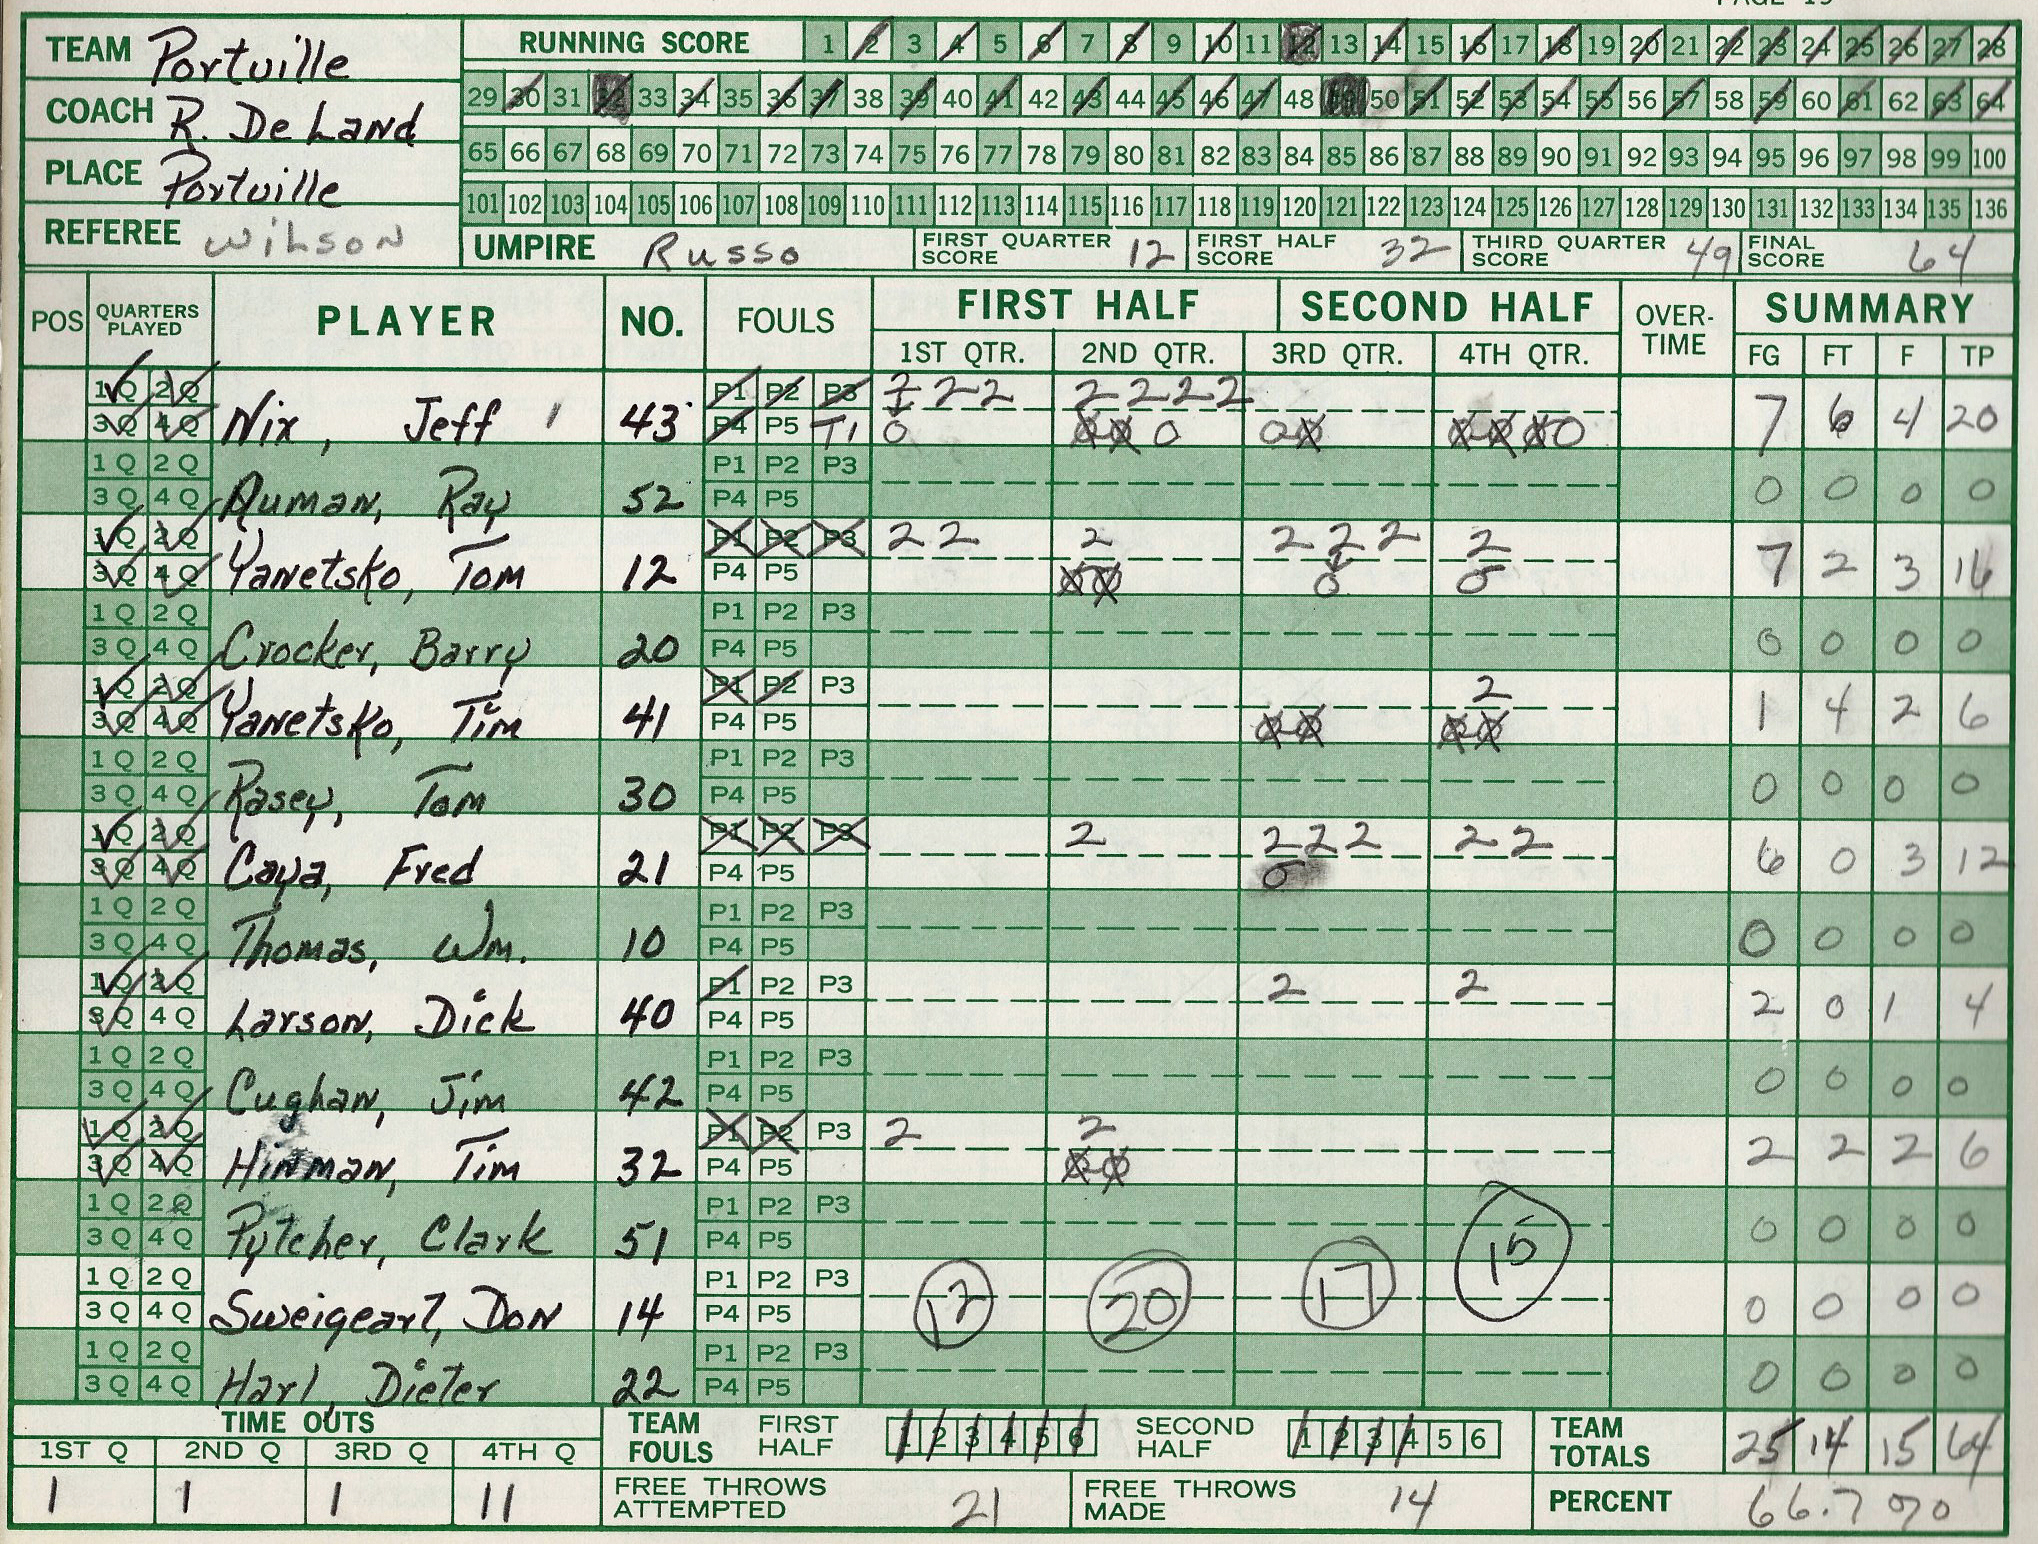 PAGE 15
TEAM Portville
COACH R. DeLand
PLACE Portville
REFEREE Wilson
RUNNING SCORE 1 2 3 4 5 6 7 8 9 10 11 12 13 14 15 16 17 18 19 20 21 22 23 24 25 26 27 28
29 30 31 32 33 34 35 36 37 38 39 40 41 42 43 44 45 46 47 48 49 50 51 52 53 54 55 56 57 58 59 60 61 62 63 64
65 66 67 68 69 70 71 72 73 74 75 76 77 78 79 80 81 82 83 84 85 86 87 88 89 90 91 92 93 94 95 96 97 98 99 100
101 102 103 104 105 106 107 108 109 110 111 112 113 114 115 116 117 118 119 120 121 122 123 124 125 126 127 128 129 130 131 132 133 134 135 136
UMPIRE Russo FIRST QUARTER SCORE 12 FIRST HALF SCORE 32 THIRD QUARTER SCORE 49 FINAL SCORE 64
POS QUARTERS PLAYED PLAYER NO. FOULS FIRST HALF SECOND HALF OVER-TIME SUMMARY
1ST QTR. 2ND QTR. 3RD QTR. 4TH QTR. FG FT F TP
1Q 2Q P1 P2 P3 2 2 2 2 2 2 2
3Q 4Q Nix, Jeff 43 P4 P5 T1 0 0 0 0 0 0 0 0 0 0 7 6 4 20
1Q 2Q P1 P2 P3
3Q 4Q Auman, Ray 52 P4 P5 0 0 0 0
1Q 2Q P1 P2 P3 2 2 2 2 2 2 2
3Q 4Q Yanetsko, Tom 12 P4 P5 0 0 0 0 7 2 3 16
1Q 2Q P1 P2 P3
3Q 4Q Crocker, Barry 20 P4 P5 0 0 0 0
1Q 2Q P1 P2 P3 2
3Q 4Q Yanetsko, Tim 41 P4 P5 0 0 0 0 1 4 2 6
1Q 2Q P1 P2 P3
3Q 4Q Rasey, Tom 30 P4 P5 0 0 0 0
1Q 2Q P1 P2 P3 2 2 2 2 2 2
3Q 4Q Caya, Fred 21 P4 P5 0 6 0 3 12
1Q 2Q P1 P2 P3
3Q 4Q Thomas, Wm. 10 P4 P5 0 0 0 0
1Q 2Q P1 P2 P3 2 2
3Q 4Q Larson, Dick 40 P4 P5 2 0 1 4
1Q 2Q P1 P2 P3
3Q 4Q Cughan, Jim 42 P4 P5 0 0 0 0
1Q 2Q P1 P2 P3 2 2
3Q 4Q Hinman, Tim 32 P4 P5 0 0 2 2 2 6
1Q 2Q P1 P2 P3
3Q 4Q Pytcher, Clark 51 P4 P5 0 0 0 0
1Q 2Q P1 P2 P3 12 20 17 15
3Q 4Q Sweigeart, Don 14 P4 P5 0 0 0 0
1Q 2Q P1 P2 P3
3Q 4Q Harl, Dieter 22 P4 P5 0 0 0 0
TIME OUTS
1ST Q 2ND Q 3RD Q 4TH Q
1 1 1 11
TEAM FOULS FIRST HALF 1 2 3 4 5 6 SECOND HALF 1 2 3 4 5 6
TEAM TOTALS 25 14 15 64
FREE THROWS ATTEMPTED 21 FREE THROWS MADE 14 PERCENT 66.7 %